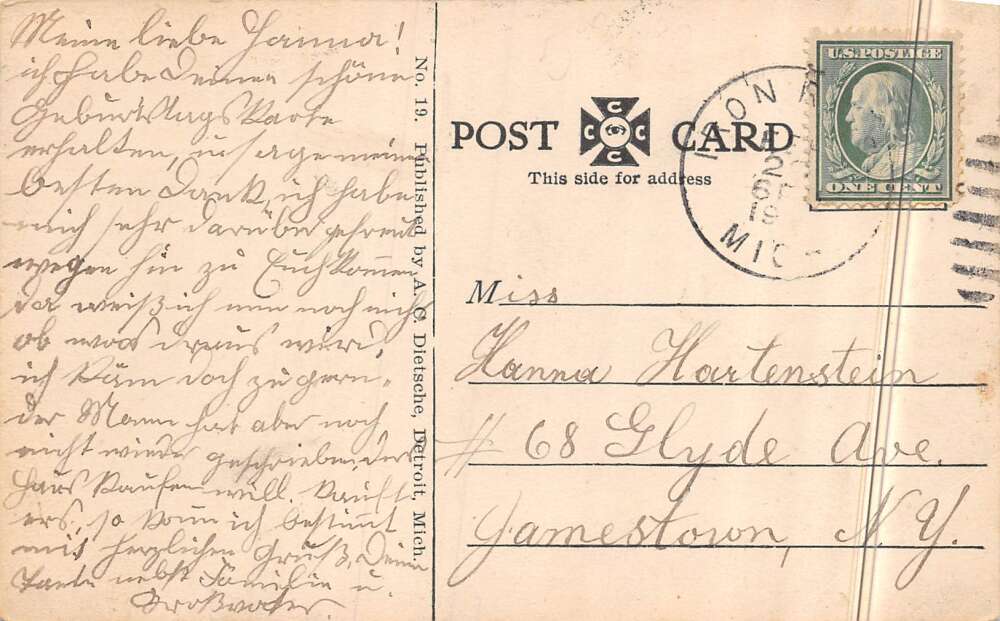 Meine liebe Hanna!
ich habe Deine schöne
Geburtstags Karte
erhalten, u. sage meinen
besten Dank, ich habe
mich sehr darüber gefreut
wegen hin zu Euch kommen
da weiß ich nun noch nicht
ob was draus wird,
ich käm doch zu gern,
der Mann hat aber noch
nicht wieder geschrieben, der
Haus kaufen will. Kauft
ers, so komm ich bestimmt
mit herzlichen Gruß, Deine
Tante nebst Familie u.
Großvater.
No. 19. Published by A. C. Dietsche, Detroit, Mich.
POST CARD
C
C C
C
This side for address
U.S. POSTAGE
ONE CENT
IRON R
MICH
Miss
Hanna Hartenstein
# 68 Glyde Ave.
Jamestown, N.Y.